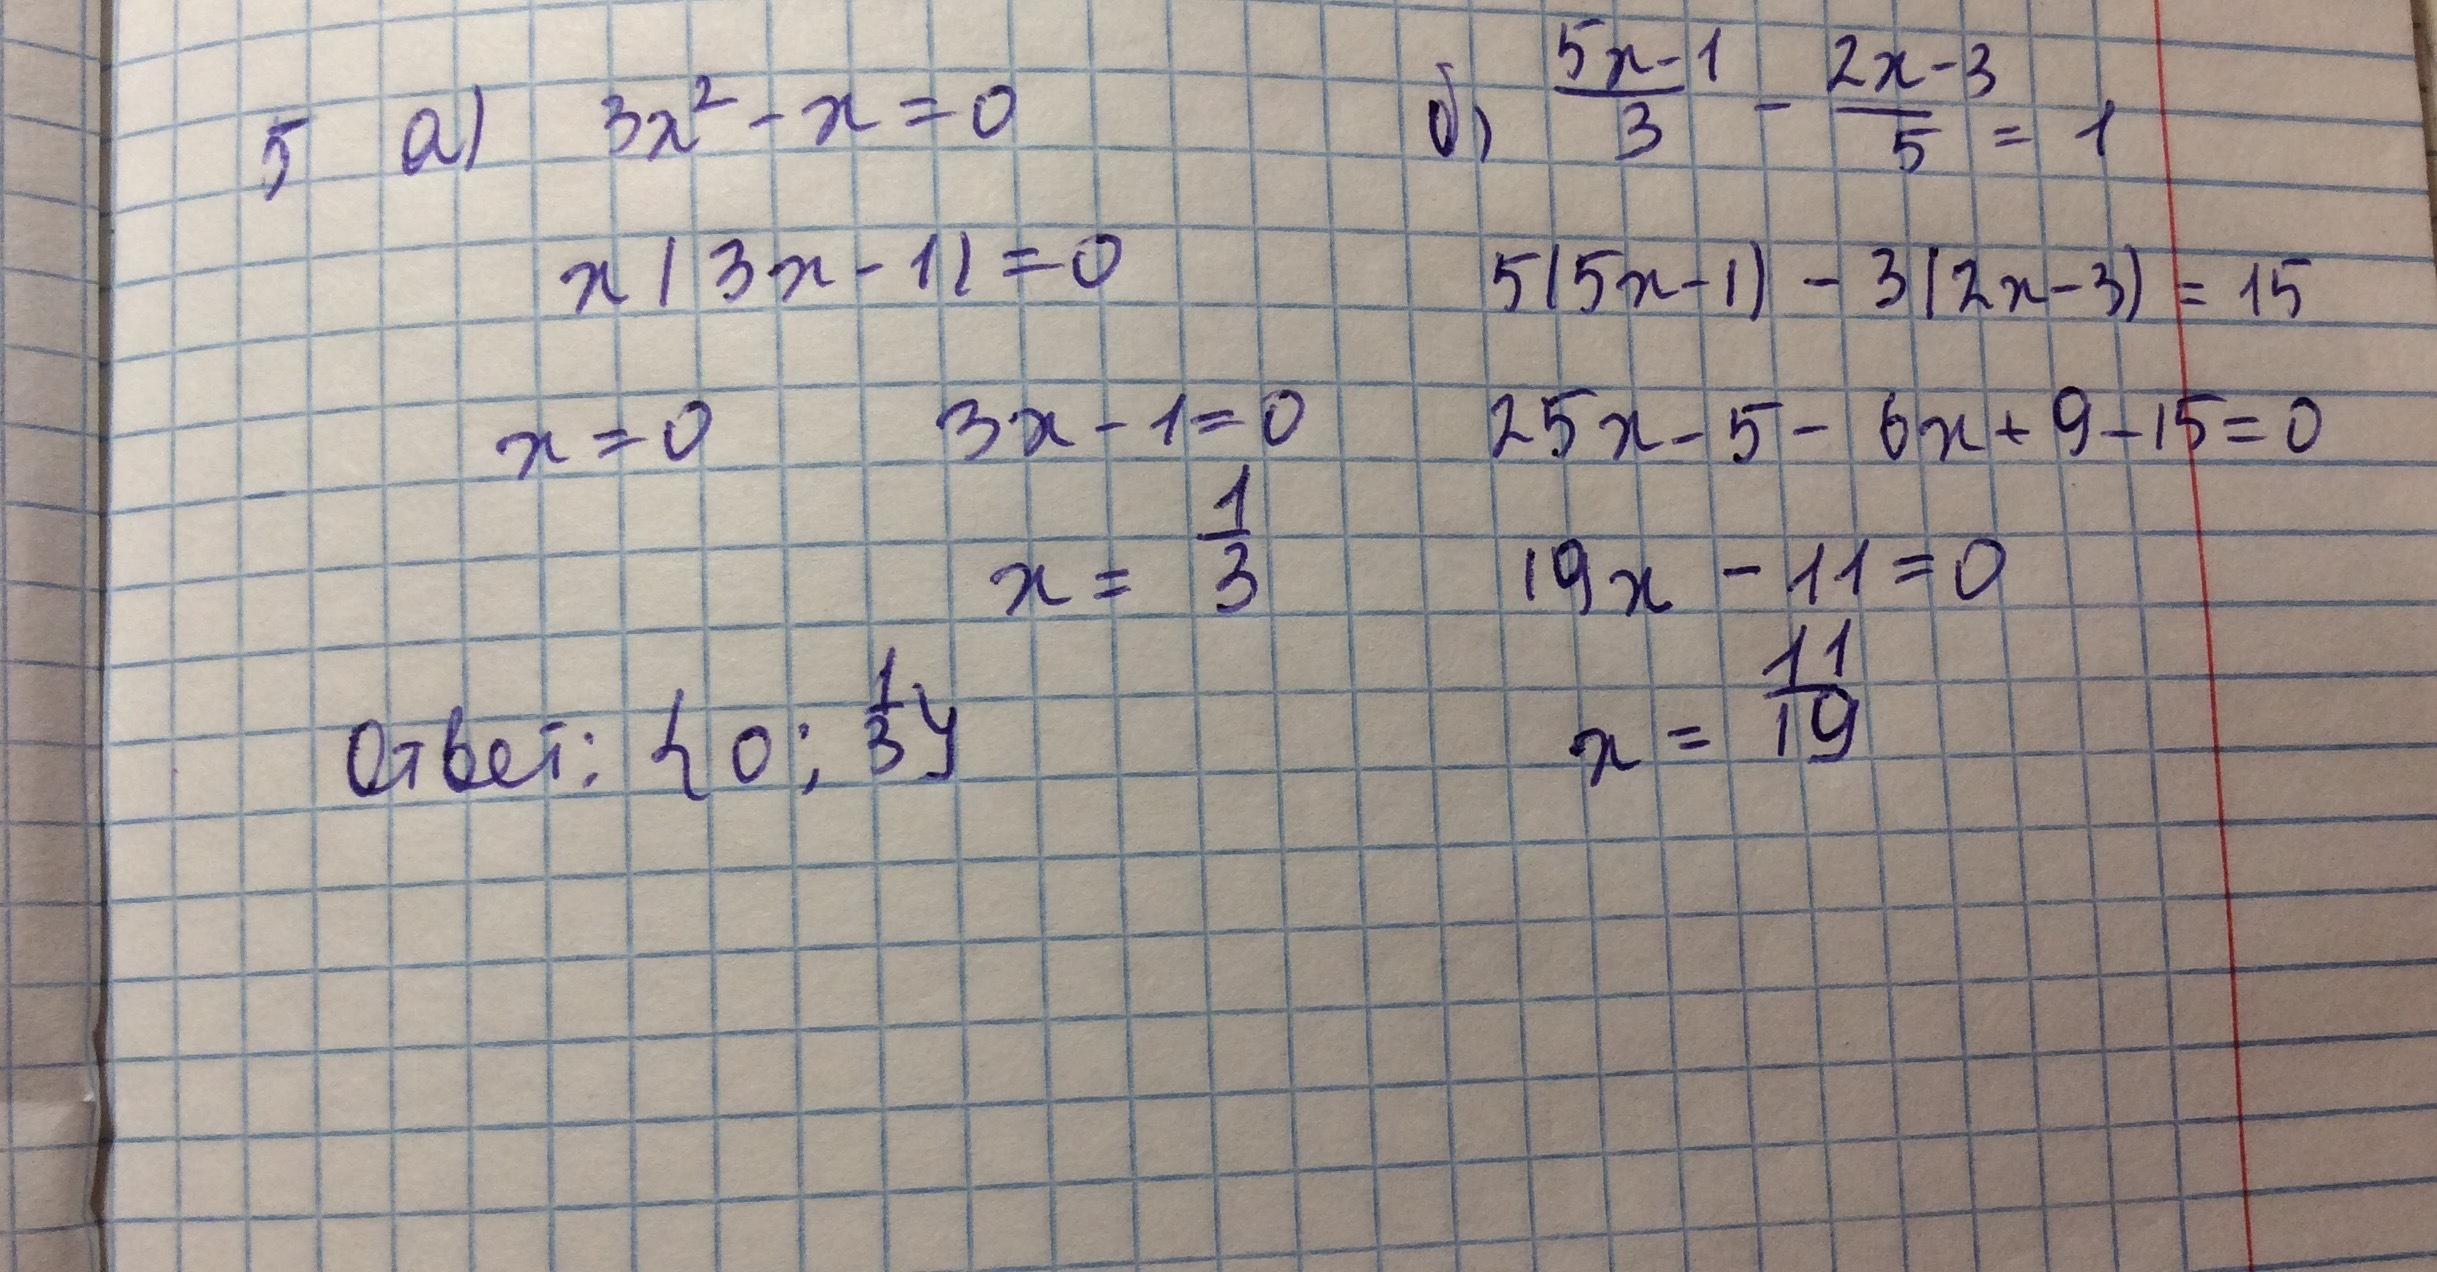 5 а) 3x² - x = 0
x(3x - 1) = 0
x = 0 3x - 1 = 0
x = 1/3
Ответ: {0; 1/3}
б) (5x-1)/3 - (2x-3)/5 = 1
5(5x-1) - 3(2x-3) = 15
25x - 5 - 6x + 9 - 15 = 0
19x - 11 = 0
x = 11/19